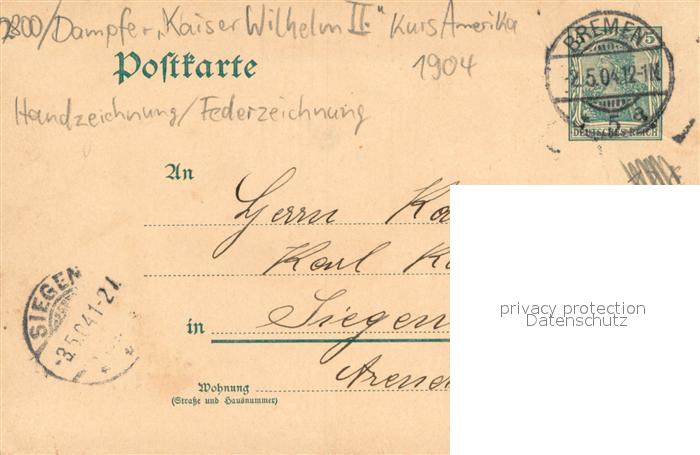 2800/Dampfer „Kaiser Wilhelm II." Kurs Amerika
1904
Postkarte
Handzeichnung/Federzeichnung
BREMEN
2.5.04.12-1N.
5 a
5
DEUTSCHES REICH
An
Herrn
Karl
in Siegen
Wohnung
(Straße und Hausnummer)
SIEGEN
-3.5.04.1-2
privacy protection
Datenschutz